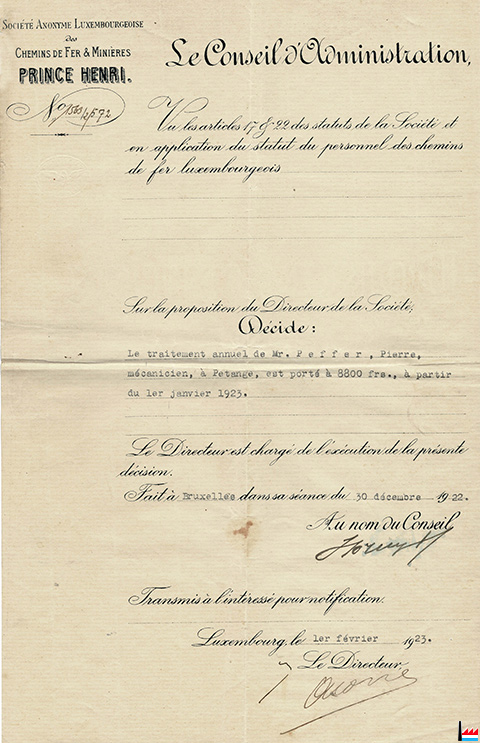 Société Anonyme Luxembourgeoise
des
Chemins de Fer & Minières
PRINCE HENRI.
Le Conseil d'Administration,
Vu les articles 17 & 22 des statuts de la Société et
en application du statut du personnel des chemins
de fer luxembourgeois
Sur la proposition du Directeur de la Société;
Décide :
Le traitement annuel de Mr. P e f f e r , Pierre,
mécanicien, à Petange, est porté à 8800 frs., à partir
du 1er janvier 1923.
Le Directeur est chargé de l'exécution de la présente
décision.
Fait à Bruxelles dans sa séance du 30 décembre 1922.
Au nom du Conseil
Transmis à l'intéressé pour notification.
Luxembourg, le 1er février 1923.
Le Directeur,